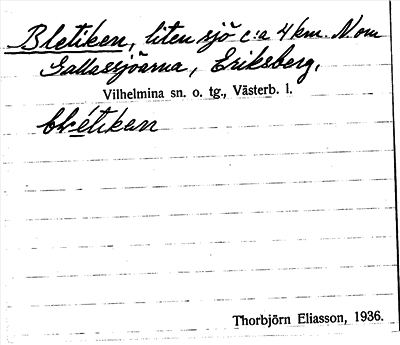 Bletiken, liten sjö c:a 4 km. N om
Gallassjöarna, Eriksberg,
Vilhelmina sn. o. tg., Västerb. l.
blétikan
Thorbjörn Eliasson, 1936.